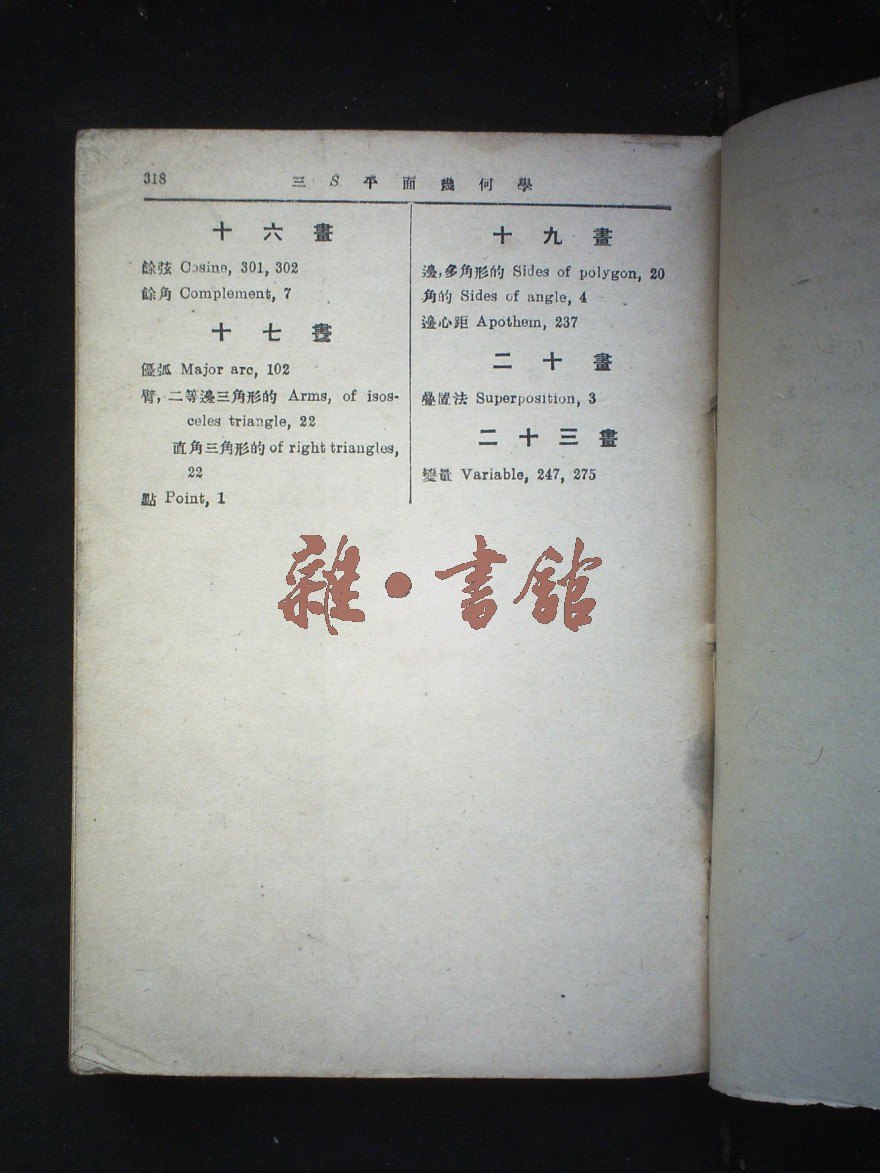 318
三 S 平 面 幾 何 學
十 六 畫
餘弦 Cosine, 301, 302
餘角 Complement, 7
十 七 畫
優弧 Major arc, 102
臂,二等邊三角形的 Arms, of isos-
celes triangle, 22
直角三角形的 of right triangles,
22
點 Point, 1
十 九 畫
邊,多角形的 Sides of polygon, 20
角的 Sides of angle, 4
邊心距 Apothem, 237
二 十 畫
疊置法 Superposition, 3
二 十 三 畫
變量 Variable, 247, 275
雜·書館